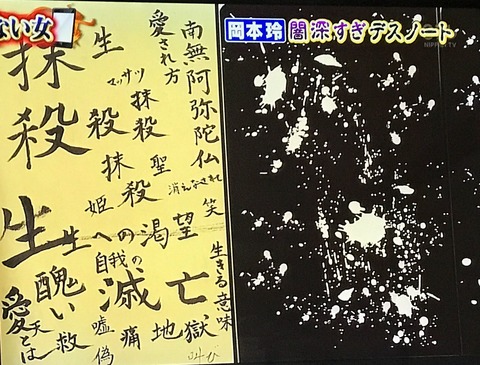 ない女
岡本玲 闇深すぎデスノート
NIPPON TV
南無阿弥陀仏
消えなされ
笑
生きる意味
愛され方
抹殺
聖
渇望
亡
地獄
叫び
生
マッサツ
殺
抹
殺
姫
への
自我の
滅
痛
嘘
偽
抹殺
生
生
醜い
救
愛とは
天